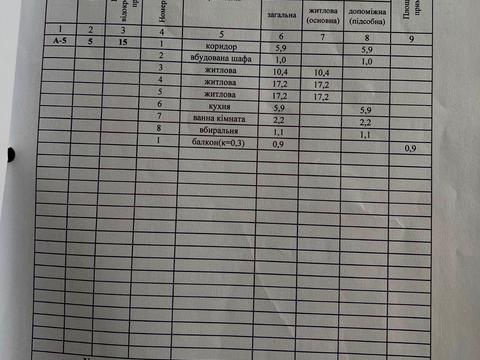 відокр
пр
Номер
загальна
житлова
(основна)
допоміжна
(підсобна)
Площ
прим
1 2 3 4 5 6 7 8 9
А-5 5 15 1 коридор 5,9 5,9
2 вбудована шафа 1,0 1,0
3 житлова 10,4 10,4
4 житлова 17,2 17,2
5 житлова 17,2 17,2
6 кухня 5,9 5,9
7 ванна кімната 2,2 2,2
8 вбиральня 1,1 1,1
1 балкон(к=0,3) 0,9 0,9